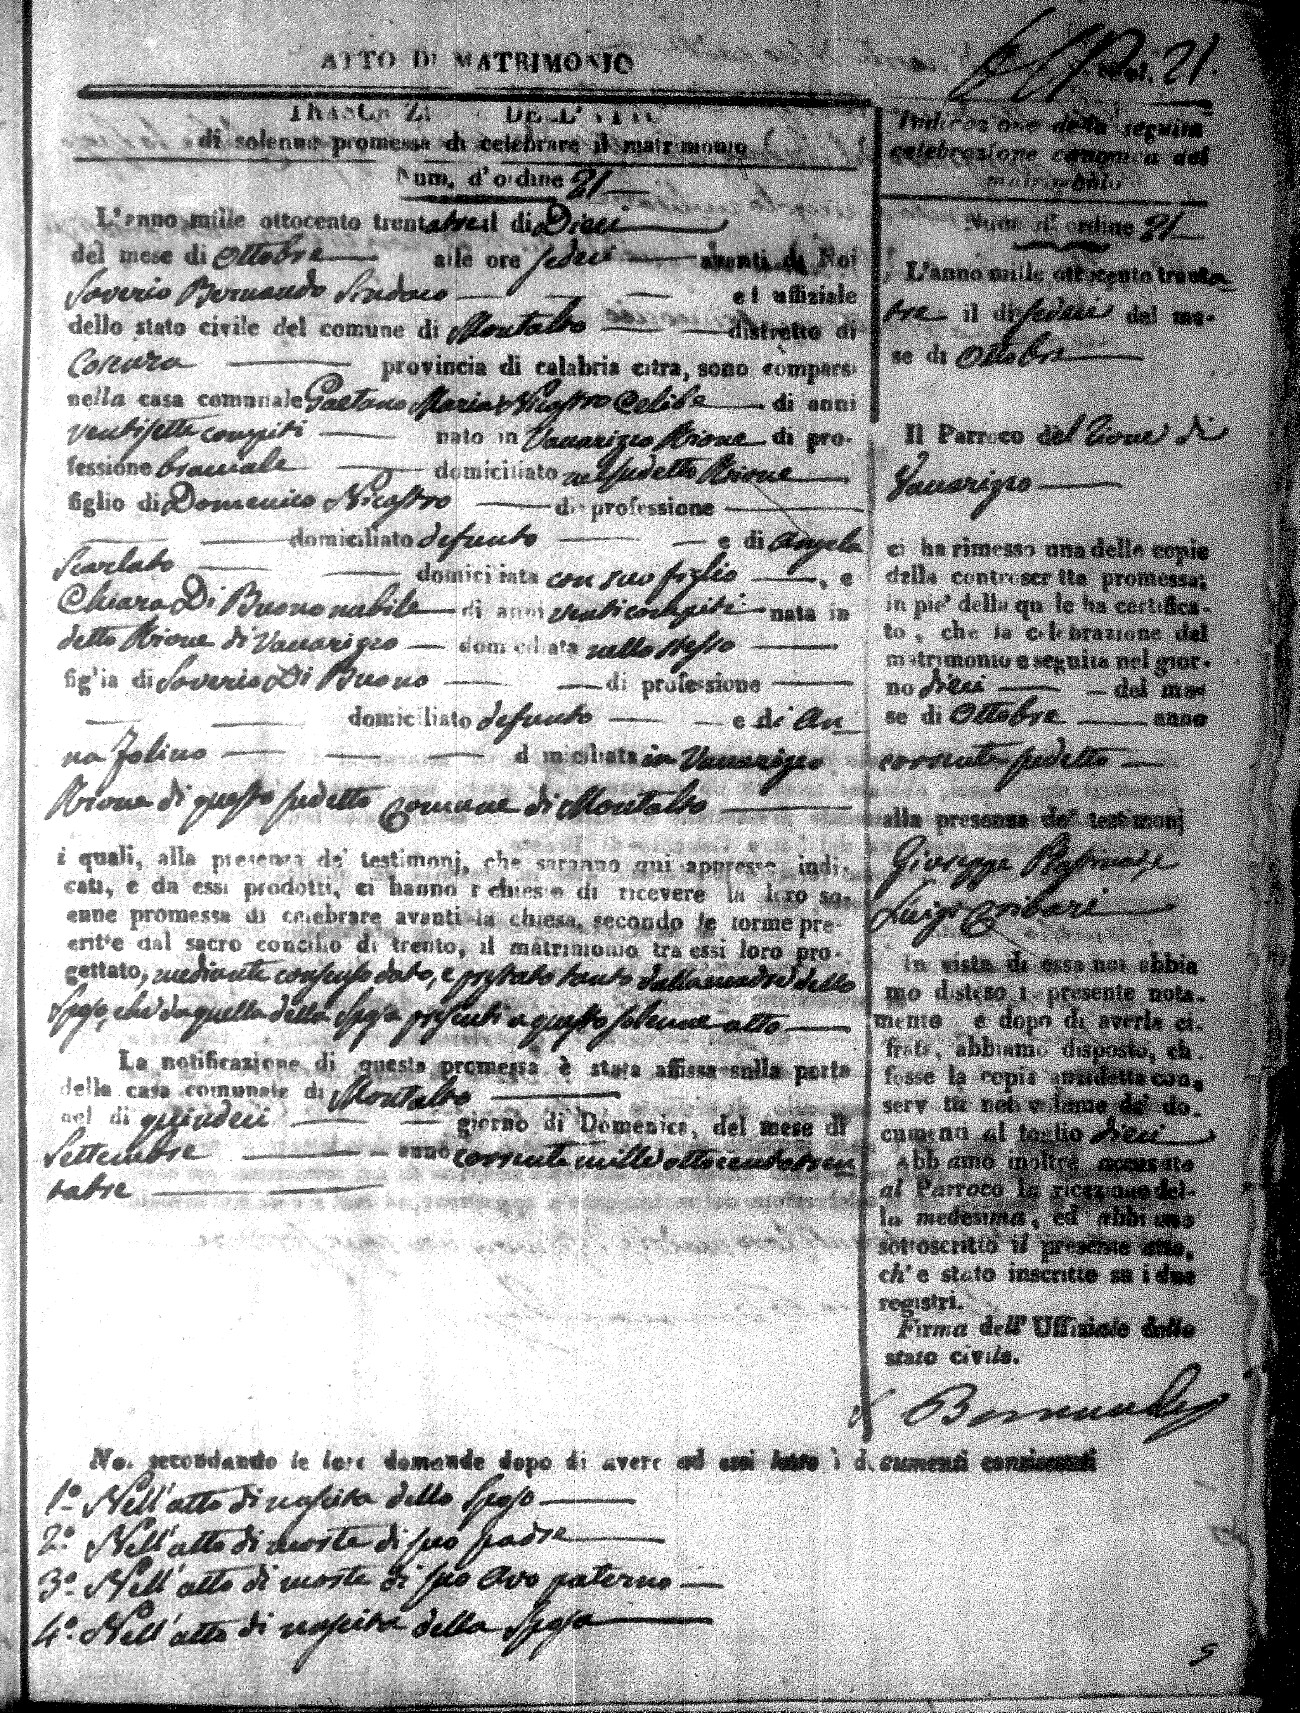 ATTO DI MATRIMONIO
Fol. 21.
DELL'ATTO
di solenne promessa di celebrare il matrimonio
Num. d'ordine 21
L'anno mille ottocento trentatre il di Dieci
del mese di Ottobre alle ore sedici avanti di Noi
Saverio Bernaudo Sindaco ed uffiziale
dello stato civile del comune di Montalto distretto di
Cosenza provincia di calabria citra, sono comparsi
nella casa comunale Gaetano Maria Nicastro Celibe di anni
ventisette compiti nato in Vaccarizzo Rione di pro-
fessione bracciale domiciliato nel sudetto Rione
figlio di Domenico Nicastro di professione
domiciliato defunto e di Angela
Scarlato domiciliata con suo figlio, e
Chiara Di Buono nubile di anni venti compiti nata in
detto Rione di Vaccarizzo domiciliata nello stesso
figlia di Saverio Di Buono di professione
domiciliato defunto e di An
na Folino domiciliata in Vaccarizzo
Rione di questo sudetto Comune di Montalto
i quali, alla presenza de' testimonj, che saranno qui appresso indi-
cati, e da essi prodotti, ci hanno richiesto di ricevere la loro so-
enne promessa di celebrare avanti la chiesa, secondo le forme pre-
critte dal sacro concilio di trento, il matrimonio tra essi loro pro-
gettato, mediante consenso dato, e prestato tanto dalla madre dello
Sposo, che da quella della Sposa presenti a questo solenne atto
La notificazione di questa promessa è stata affissa sulla porta
della casa comunale di Montalto
nel di quindeci giorno di Domenica, del mese di
Settembre anno corrente mille ottocento tren
tatre
Noi secondando le loro domande dopo di avere ad essi letto i documenti consistenti
1.° Nell'atto di nascita dello Sposo
2.° Nell'atto di morte di suo padre
3.° Nell'atto di morte di suo Avo paterno
4.° Nell'atto di nascita della Sposa
Indicazione della seguita
celebrazione canonica del
matrimonio
Num. d'ordine 21
L'anno mille ottocento trenta
tre il di sedeci del me-
se di Ottobre
Il Parroco del Rione di
Vaccarizzo
ci ha rimesso una delle copie
della controscritta promessa;
in pie' della quale ha certifica-
to, che la celebrazione del
matrimonio e seguita nel gior-
no dieci del me-
se di Ottobre anno
corrente sudetto
alla presenza de' testimonj
Giuseppe
Luigi
In vista di essa noi abbia
mo disteso il presente nota-
mento e dopo di averla ci-
frata, abbiamo disposto, ch.
fosse la copia anzidetta con-
servata nel volume de' do-
cumenti al foglio dieci
Abbiamo inoltre accusato
al Parroco la ricezione del-
la medesima, ed abbiamo
sottoscritto il presente atto,
ch'e stato inscritto su i due
registri.
Firma dell' Uffiziale dello
stato civile.
Bernaudo
5